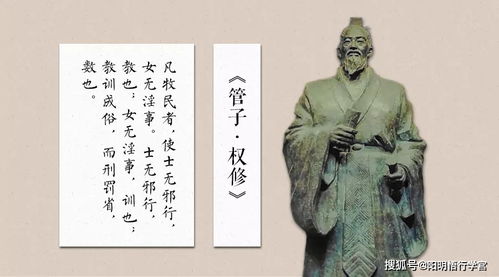 《管子·权修》
凡牧民者，使士无邪行，
女无淫事。士无邪行，
教也；女无淫事，训也；
教训成俗，而刑罚省，
数也。
搜狐号@阳明悟行学宫